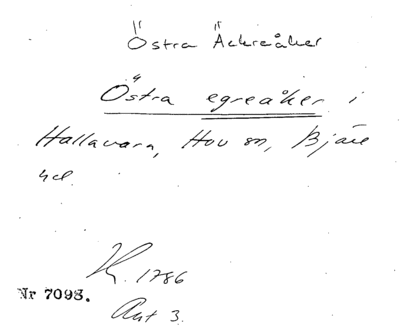 Östra Äckreåker
Östra egreåker i
Hallavara, Hov sn, Bjäre
hd.
1786
Nr 7093.
Akt 3.